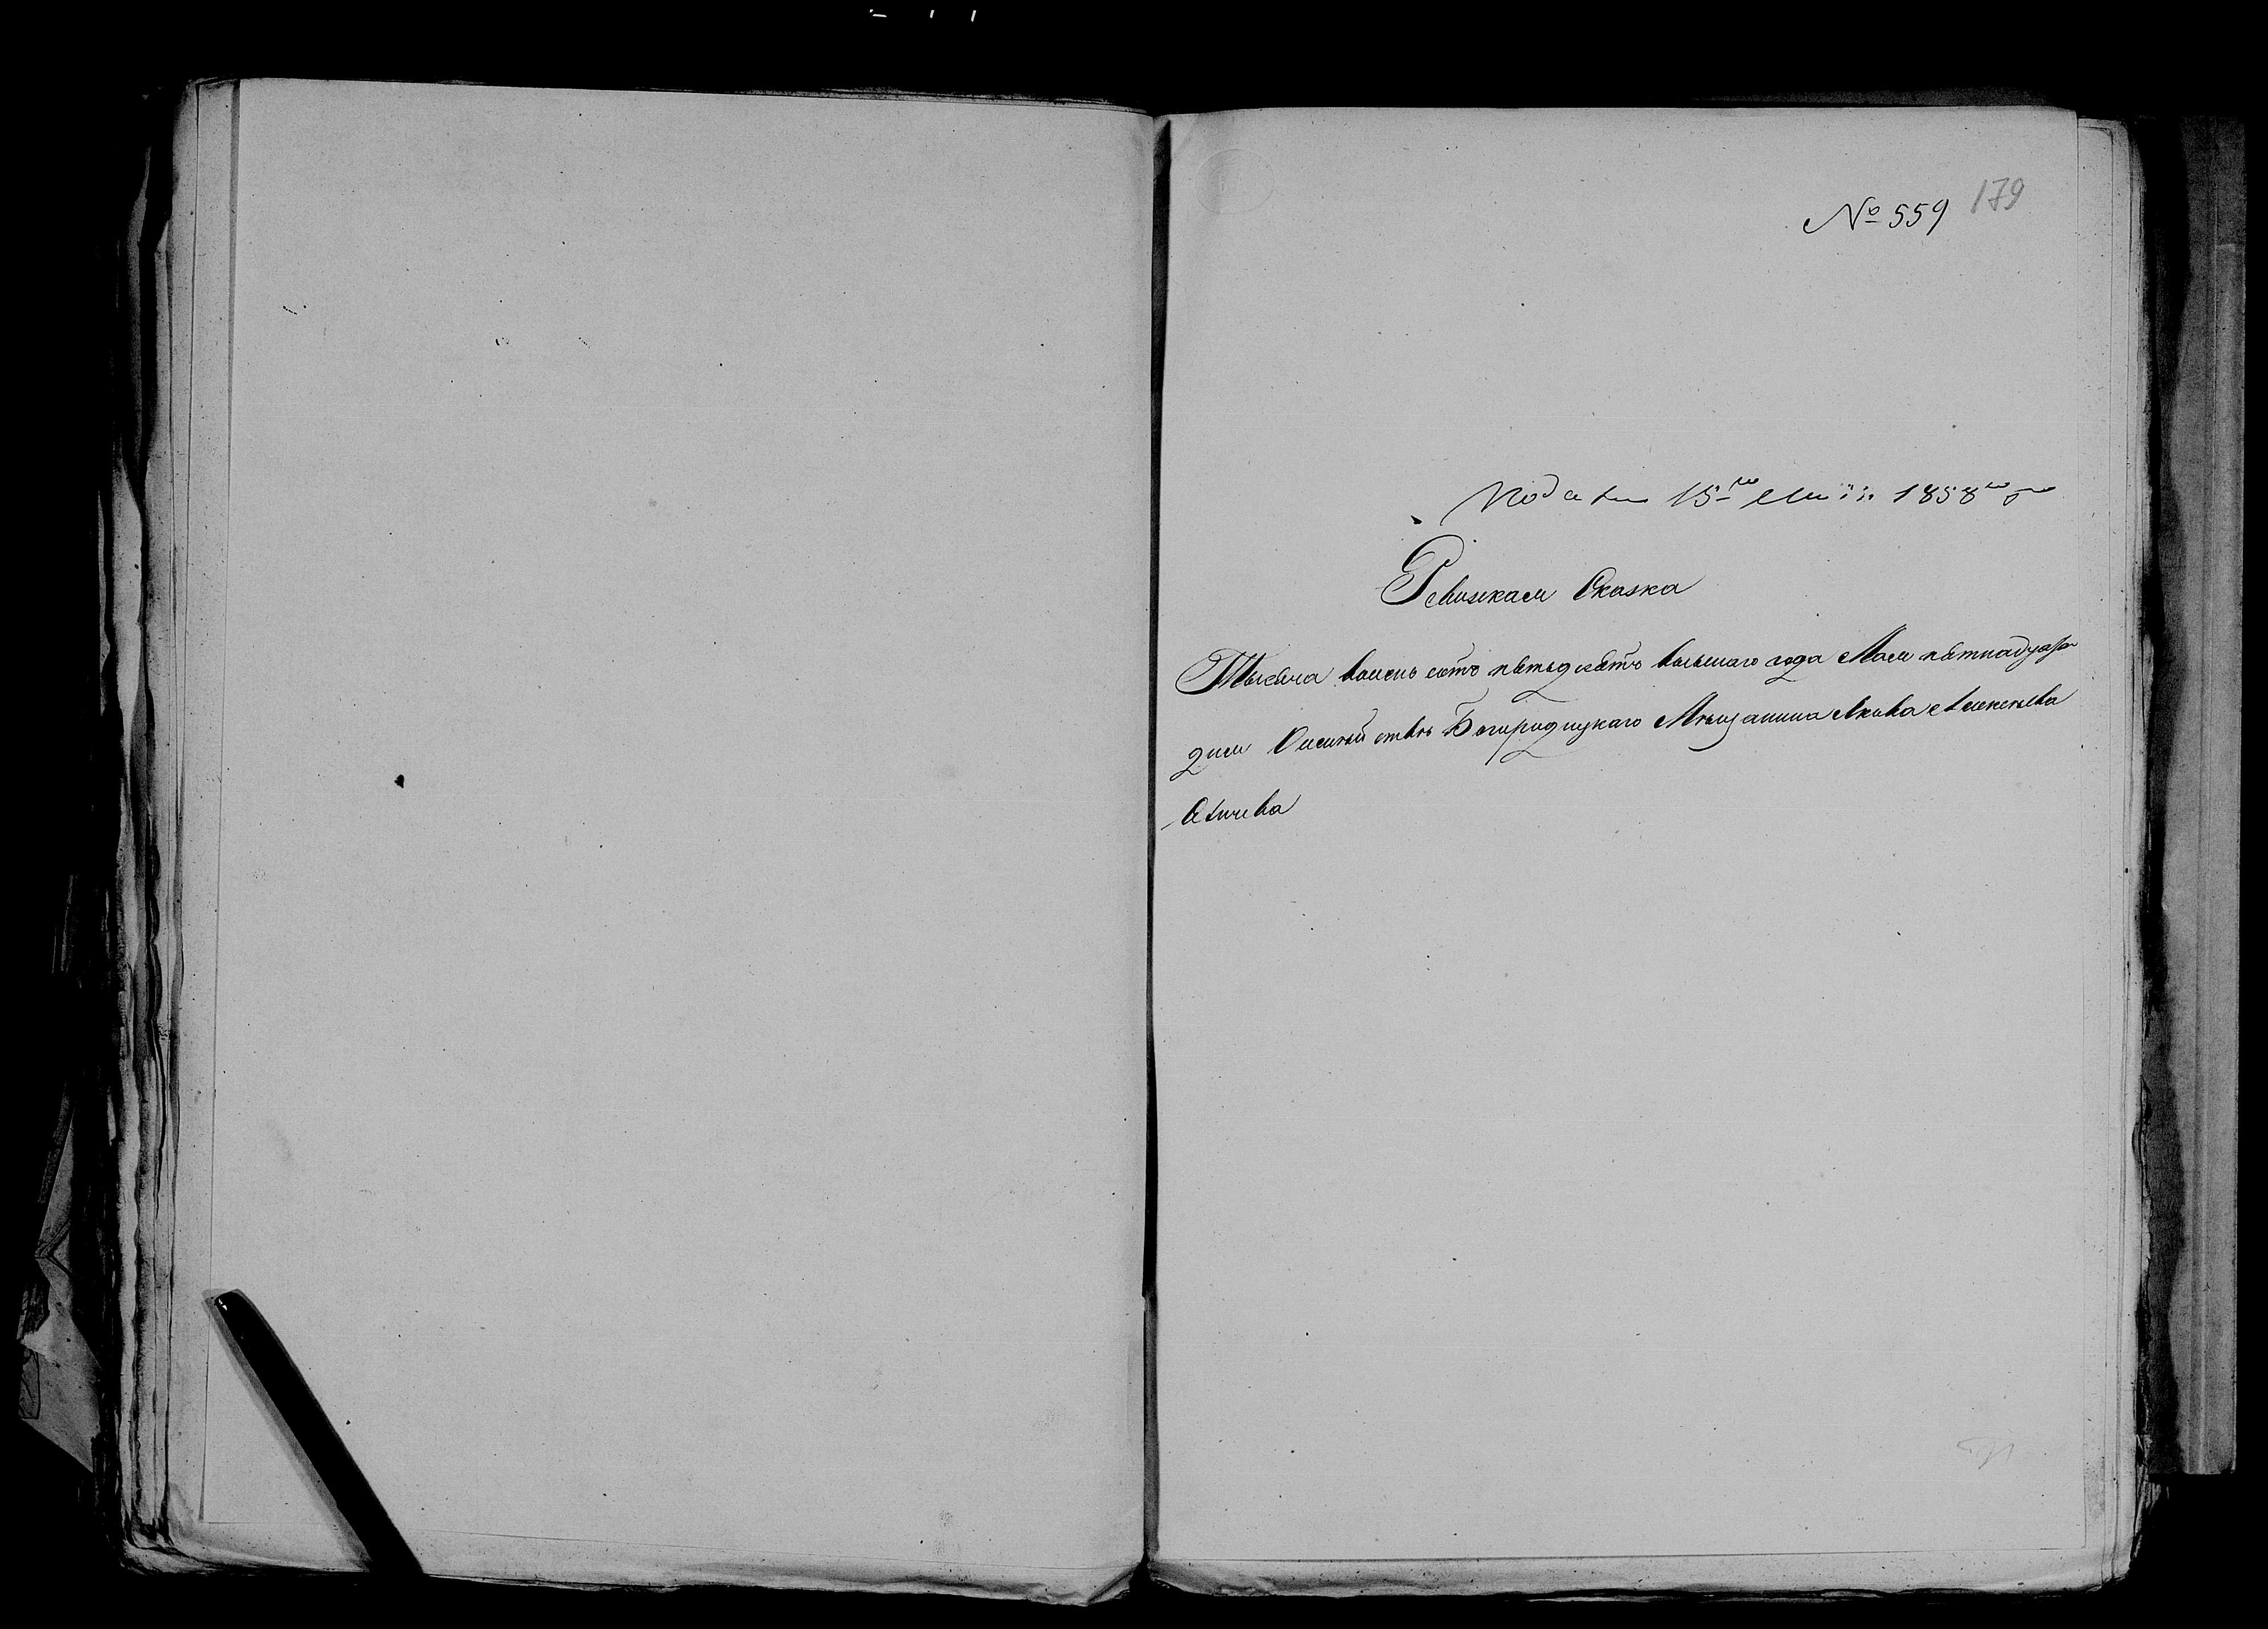 № 559 179
Подана 15го Маія 1858го го
Ревизская Сказка
Тысяча восемь сотъ пятьдесятъ восьмаго года Мая пятнадцата
дня О семействѣ Богородицкаго Мѣщанина Якова Алексѣева